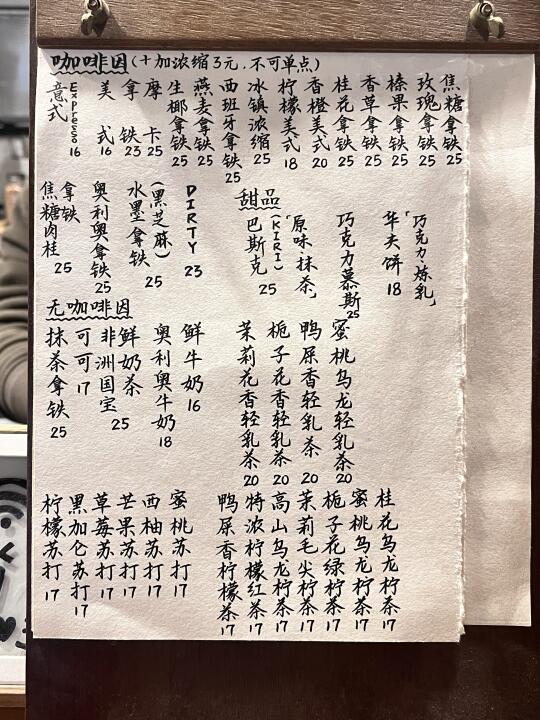 咖啡因(+加浓缩3元,不可单点)
意式 Expresso 16
美式 16
拿铁 23
摩卡 25
生椰拿铁 25
燕麦拿铁 25
西班牙拿铁 25
冰镇浓缩 25
柠檬美式 18
香橙美式 20
桂花拿铁 25
香草拿铁 25
榛果拿铁 25
玫瑰拿铁 25
焦糖拿铁 25
焦糖肉桂拿铁 25
奥利奥拿铁 25
水墨拿铁(黑芝麻) 25
DIRTY 23
甜品
巴斯克(KIRI)「原味、抹茶」 25
巧克力慕斯 25
华夫饼「巧克力、炼乳」 18
无咖啡因
抹茶拿铁 25
可可 17
非洲国宝鲜奶茶 25
奥利奥牛奶 18
鲜牛奶 16
茉莉花香轻乳茶 20
栀子花香轻乳茶 20
鸭屎香轻乳茶 20
蜜桃乌龙轻乳茶 20
柠檬苏打 17
黑加仑苏打 17
草莓苏打 17
芒果苏打 17
西柚苏打 17
蜜桃苏打 17
鸭屎香柠檬茶 17
特浓柠檬红茶 17
高山乌龙柠茶 17
茉莉毛尖柠茶 17
栀子花绿柠茶 17
蜜桃乌龙柠茶 17
桂花乌龙柠茶 17